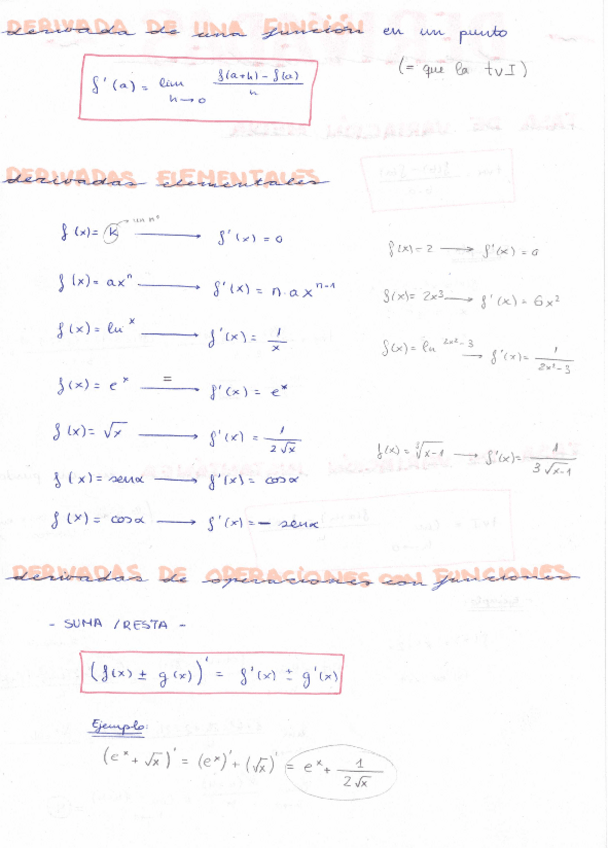 derivada de una función en un punto
f'(a) = lim h→0 f(a+h) - f(a) / h
(= que la tvI)
derivadas elementales
f(x) = k → un nº ⟶ f'(x) = 0
f(x) = 2 ⟶ f'(x) = 0
f(x) = axⁿ ⟶ f'(x) = n·axⁿ⁻¹
f(x) = 2x³ ⟶ f'(x) = 6x²
f(x) = ln x ⟶ f'(x) = 1/x
f(x) = ln 2x²-3 ⟶ f'(x) = 1/2x²-3
f(x) = eˣ = ⟶ f'(x) = eˣ
f(x) = √x ⟶ f'(x) = 1/2√x
⟶ f'(x) = 1/3√x-1
f(x) = senx ⟶ f'(x) = cosx
f(x) = cosx ⟶ f'(x) = - senx
derivadas de operaciones con funciones
- SUMA /RESTA -
(f(x) ± g(x))' = f'(x) ± g'(x)
Ejemplo:
(eˣ + √x)' = (eˣ)' + (√x)' = eˣ + 1/2√x